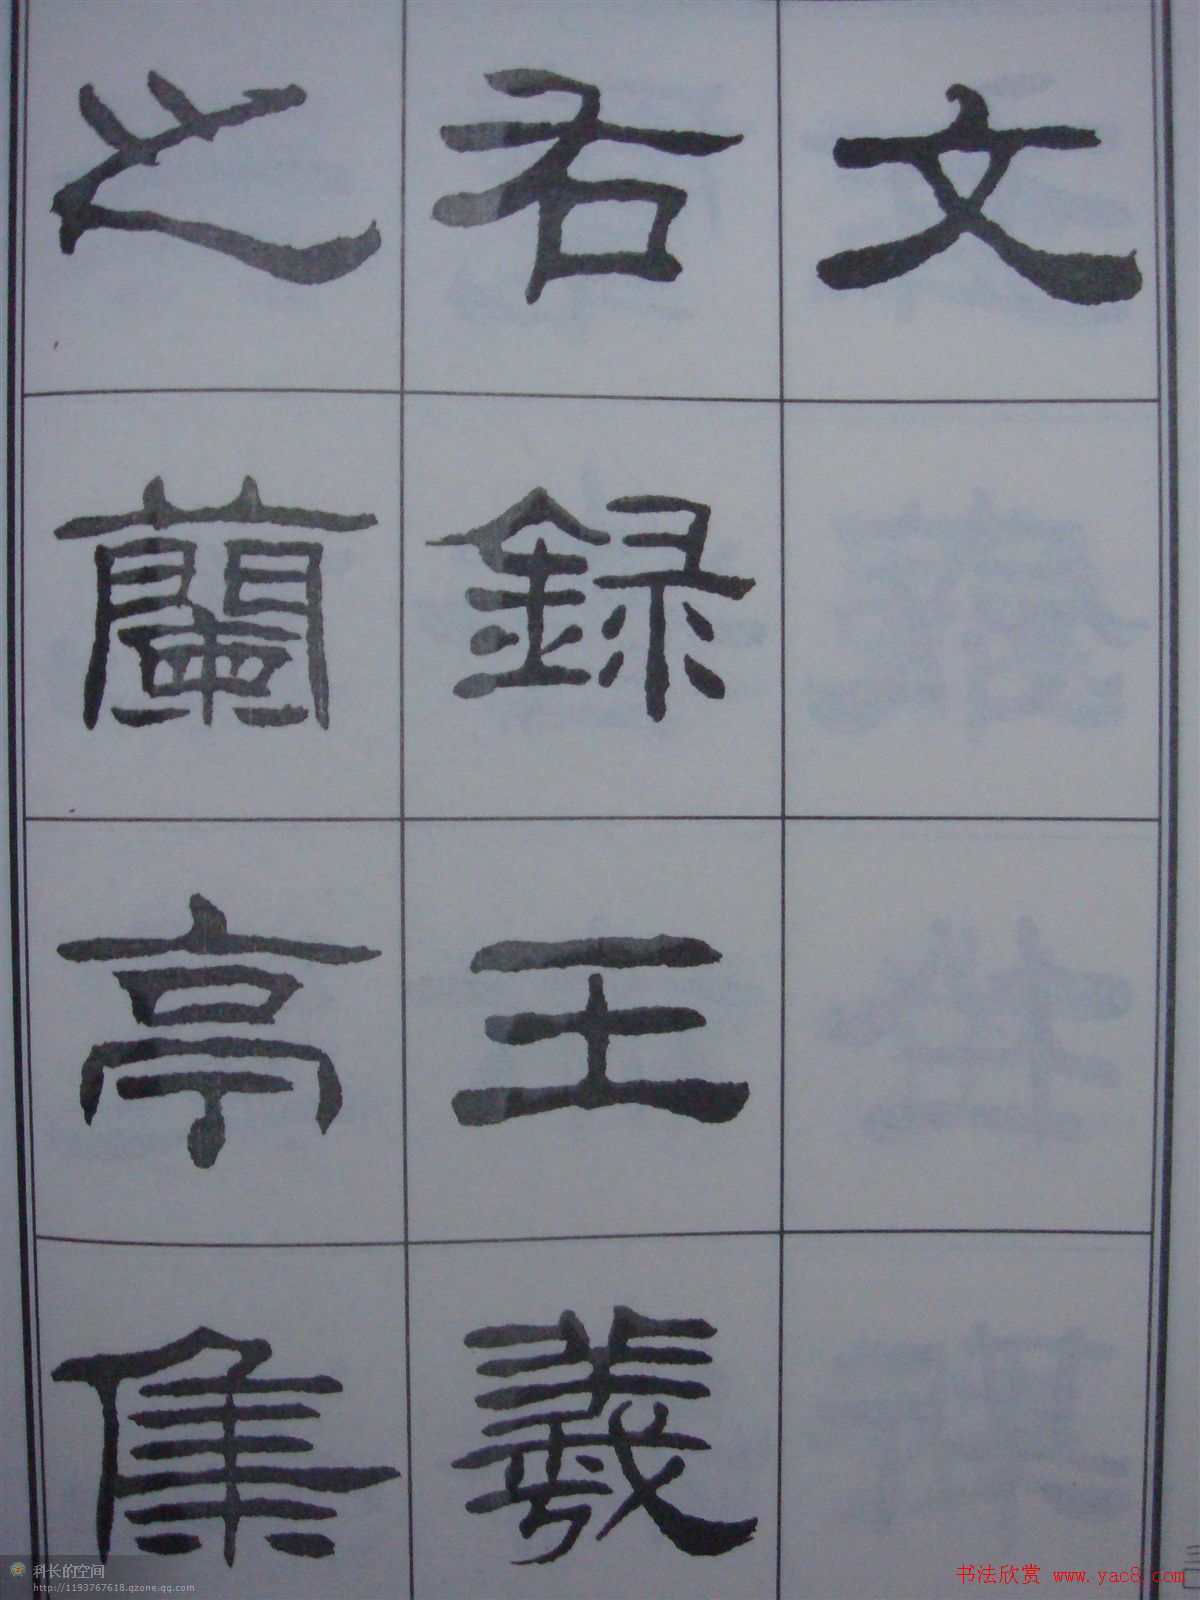 文
右録王羲
之蘭亭集
三〇
科长的空间
http://1193767618.qzone.qq.com
书法欣赏 www.yac8.com